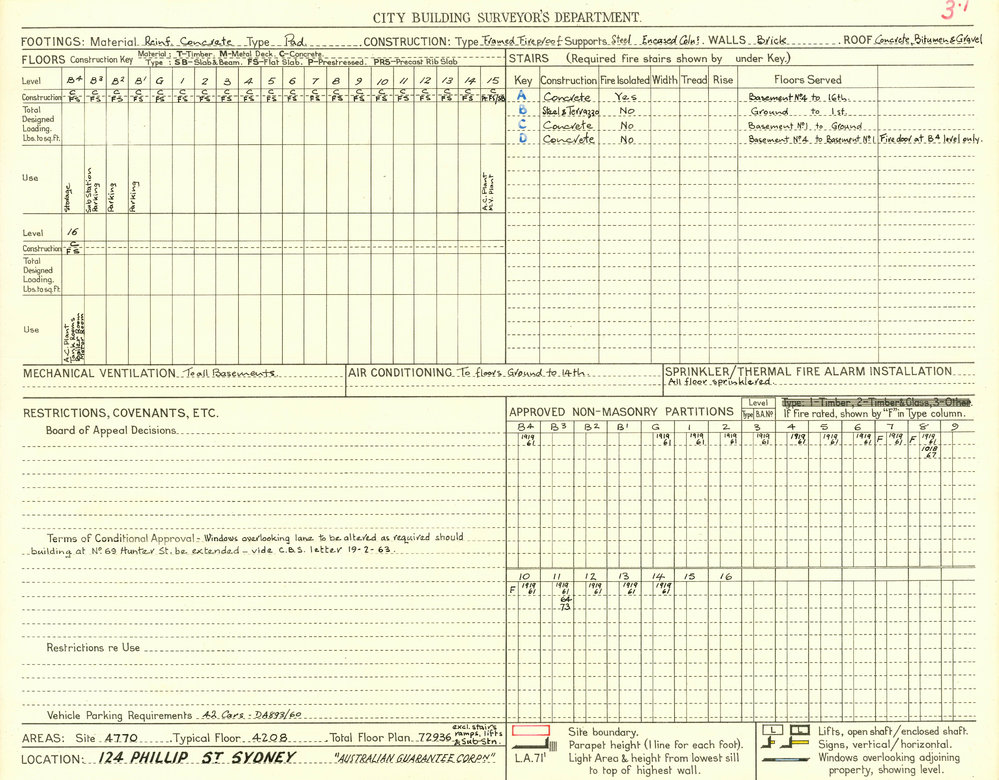 3.1
CITY BUILDING SURVEYOR'S DEPARTMENT.
FOOTINGS: Material Reinf. Concrete Type Pad CONSTRUCTION: Type Framed Fireproof Supports Steel Encased Colns. WALLS Brick ROOF Concrete, Bitumen & Gravel
FLOORS Construction Key Material: T-Timber, M-Metal Deck, C-Concrete.
Type: SB-Slab & Beam. FS-Flat Slab. P-Prestressed. PRS-Precast Rib Slab
Level B4 B3 B2 B1 G 1 2 3 4 5 6 7 8 9 10 11 12 13 14 15
Construction C C C C C C C C C C C C C C C C C C C C
FS FS FS FS FS FS FS FS FS FS FS FS FS FS FS FS FS FS FS
Total
Designed
Loading.
Lbs.to sq.ft.
Use
Storage
Sub Station
Parking
Parking
Parking
A.C. Plant
M.V. Plant
Level 16
Construction C
FS
Total
Designed
Loading.
Lbs.to sq.ft.
Use
A.C. Plant
Tank Rooms
Boiler Room
Motor Room
STAIRS (Required Fire stairs shown by under Key.)
Key Construction Fire Isolated Width Tread Rise Floors Served
A Concrete Yes Basement Nº4 to 16th.
B Steel & Terrazzo No Ground to 1st.
C Concrete No Basement Nº1 to Ground
D Concrete No Basement Nº4 to Basement Nº1 Fire door at B4 level only.
MECHANICAL VENTILATION To all Basements.
AIR CONDITIONING To floors Ground to 14th.
SPRINKLER/THERMAL FIRE ALARM INSTALLATION
All floor sprinklered.
RESTRICTIONS, COVENANTS, ETC.
Board of Appeal Decisions.
Terms of Conditional Approval - Windows overlooking lane to be altered as required should
building at Nº 69 Hunter St. be extended - vide C.B.S. letter 19-2-63.
Restrictions re Use
Vehicle Parking Requirements 42 Cars - DA893/60
APPROVED NON-MASONRY PARTITIONS Level
Type B.A.Nº
Type: 1-Timber, 2-Timber & Glass, 3-Other.
If Fire rated, shown by "F" in Type column.
B4 B3 B2 B1 G 1 2 3 4 5 6 7 8 9
1919 1919 1919 1919 1919 1919 1919 1919 F 1919 F 1919
61 61 61 61 61 61 61 61 61 61
1018
67
10 11 12 13 14 15 16
F 1919 1919 1919 1919 1919
61 61 61 61 61
64
73
AREAS: Site 4770 Typical Floor 4208 Total Floor Plan 72936 excl. stairs
ramps, lifts
& Sub-Stn.
LOCATION: 124 PHILLIP ST SYDNEY "AUSTRALIAN GUARANTEE CORPN"
Site boundary.
Parapet height (1 line for each foot).
L.A.71' Light Area & height from lowest sill
to top of highest wall.
L L Lifts, open shaft/enclosed shaft.
Signs, vertical/horizontal.
Windows overlooking adjoining
property, showing level.